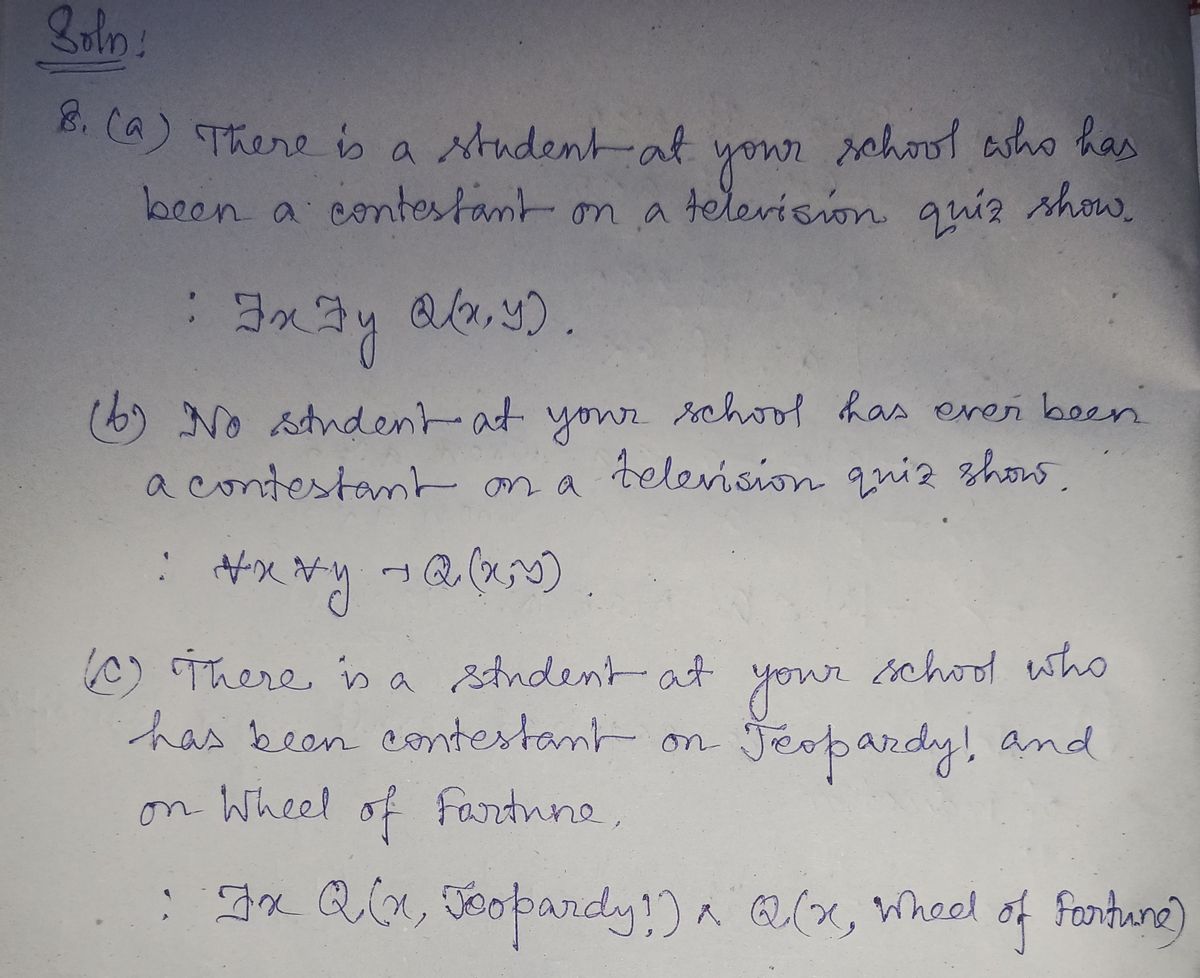 Soln:
8. (a) There is a student at your school who has
been a contestant on a television quiz show.
: ∃x∃y Q(x,y).
(b) No student at your school has ever been
a contestant on a television quiz show.
: ∀x ∀y ¬Q(x,y).
(c) There is a student at your school who
has been contestant on Jeopardy! and
on Wheel of Fartune.
: ∃x Q(x, Jeopardy!) ∧ Q(x, Wheel of Fartune)